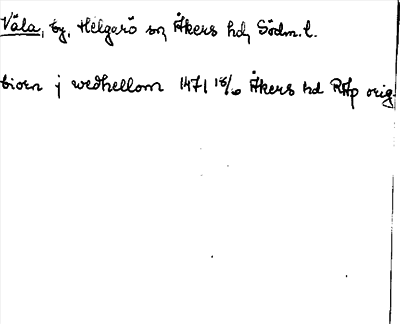 Väla, by, Helgarö sn, Åkers hd, Södm. l.
biorn j wedhellom 1471 18/6 Åkers hd RAp orig.